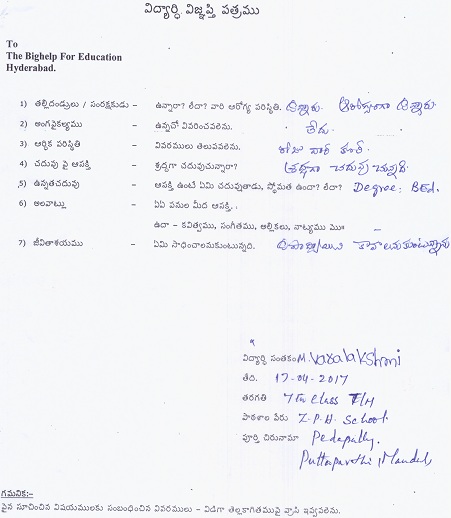 విద్యార్థి విజ్ఞప్తి పత్రము
To
The Bighelp For Education
Hyderabad.
1) తల్లిదండ్రులు / సంరక్షకుడు – ఉన్నారా? లేదా? వారి ఆరోగ్య పరిస్థితి. ఉన్నారు. ఆరోగ్యంగా ఉన్నారు.
2) అంగవైకల్యము – ఉన్నచో వివరించవలెను. లేదు.
3) ఆర్థిక పరిస్థితి – వివరములు తెలుపవలెను. రోజు వారీ కూలీ.
4) చదువు పై ఆసక్తి – శ్రద్ధగా చదువుచున్నారా? శ్రద్ధగా చదువుచున్నది.
5) ఉన్నతచదువు – ఆసక్తి ఉంటే ఏమి చదువుతాడు, స్తోమత ఉందా? లేదా? Degree: BEd.
6) అలవాట్లు – ఏఏ పనుల మీద ఆసక్తి.
ఉదా – కవిత్వము, సంగీతము, అల్లికలు, నాట్యము మొ॥ –
7) జీవితాశయము – ఏమి సాధించాలనుకుంటున్నది. ఉపాధ్యాయులు కావాలనుకుంటున్నాను
విద్యార్థి సంతకం M. Varalakshmi
తేది. 17-04-2017
తరగతి 7th Class T/M
పాఠశాల పేరు Z.P.H. School
పూర్తి చిరునామా Pedapally,
Puttaparthi, Mandal,
గమనిక:-
పైన సూచించిన విషయములకు సంబంధించిన వివరములు – విడిగా తెల్లకాగితముపై వ్రాసి ఇవ్వవలెను.